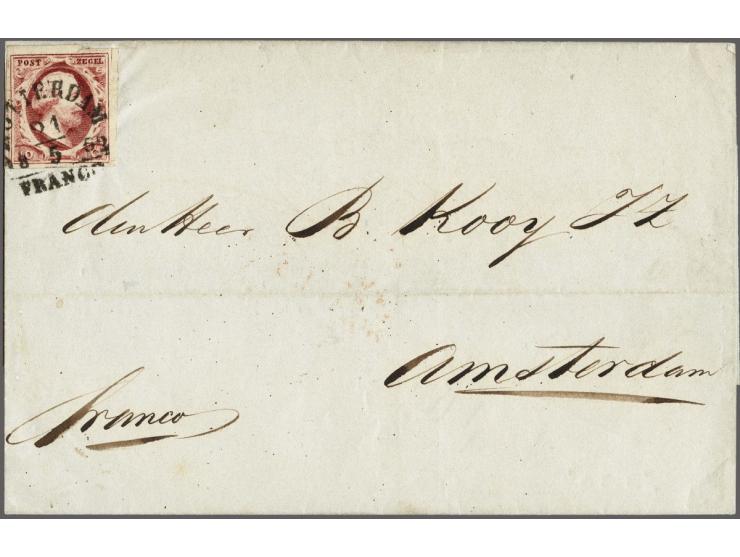 POST ZEGEL
ROTTERDAM
21
5
18 52
FRANCO
den Heer B. Kooy JZ
Amsterdam
franco